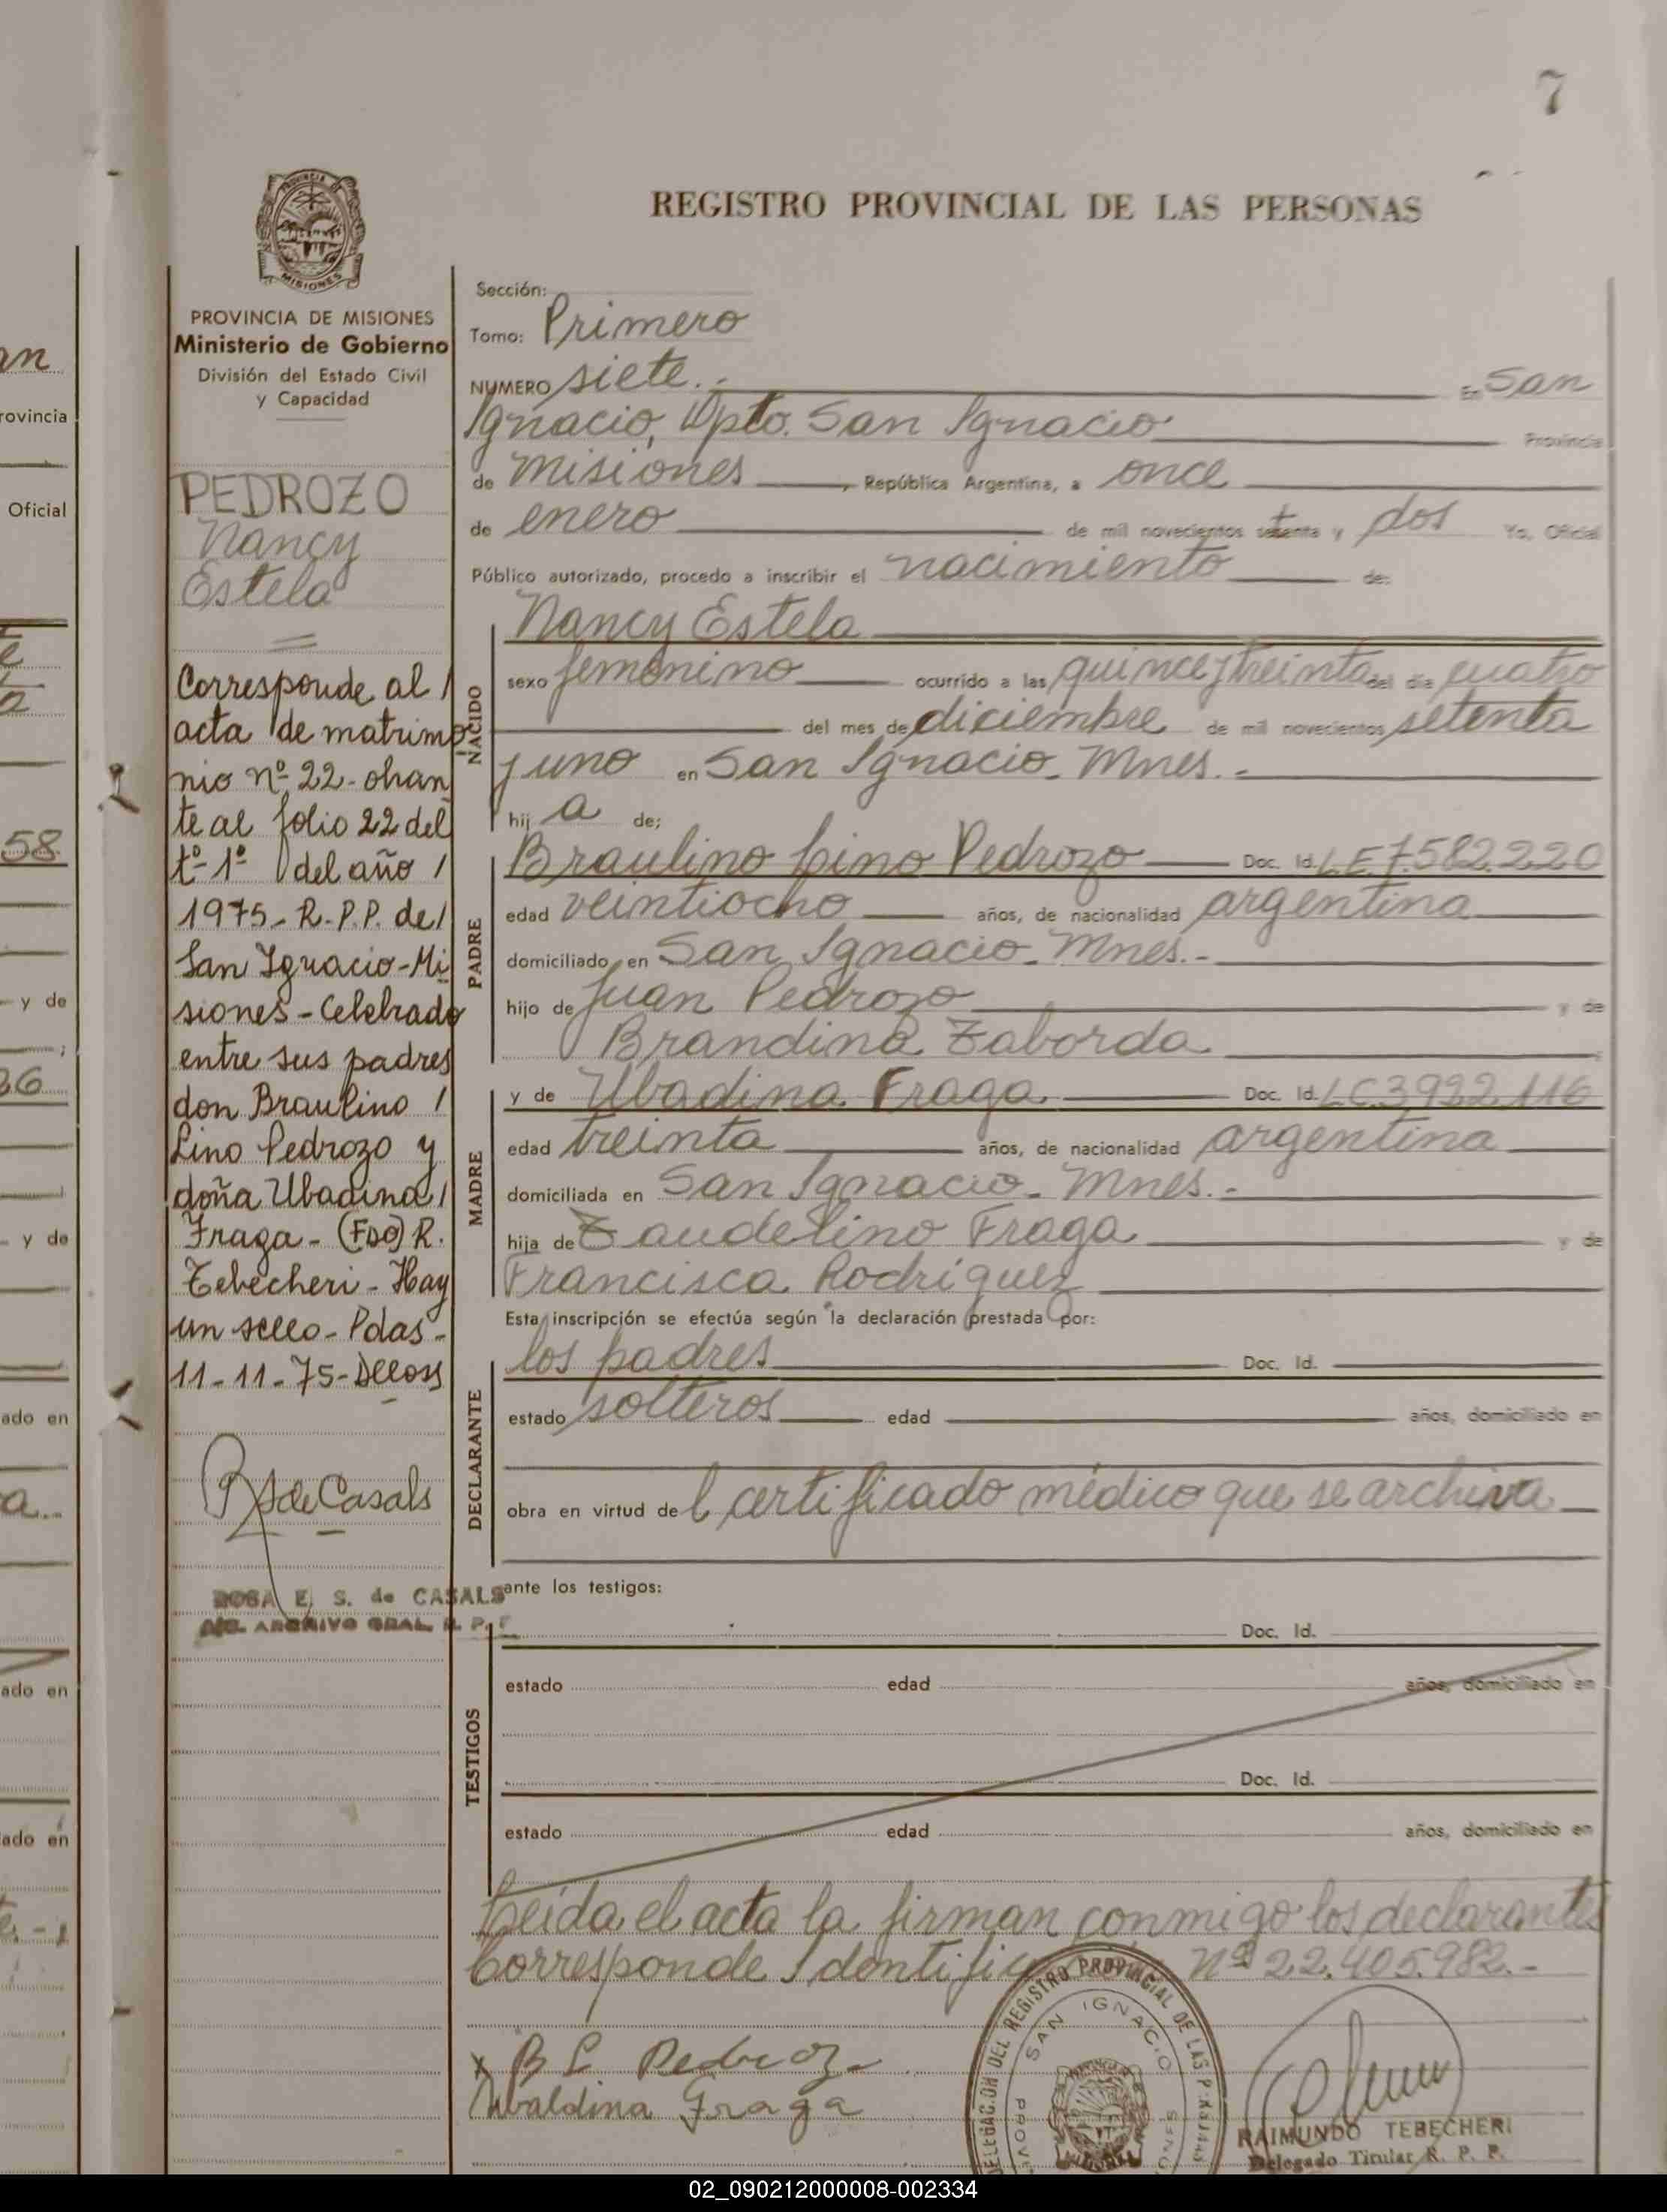 7
REGISTRO PROVINCIAL DE LAS PERSONAS
PROVINCIA DE MISIONES
Ministerio de Gobierno
División del Estado Civil
y Capacidad
PEDROZO
Nancy
Estela
Corresponde al /
acta de matrimo
nio nº 22- obran
te al folio 22 del
tº 1º del año /
1975- R.P.P. de /
San Ignacio-Mi
siones - Celebrado
entre sus padres
don Braulino /
Lino Pedrozo y
doña Ubadina /
Fraga - (FDO) R.
Tebecheri - Hay
un sello - Pdas -
11-11-75-
de Casals
ROSA E. S. de CASALS
ARCHIVO GRAL. R. P. P.
Sección:
Tomo: Primero
NUMERO siete.- En San
Ignacio, Dpto. San Ignacio Provincia
de Misiones, República Argentina, a once
de enero de mil novecientos setenta y dos Yo, Oficial
Público autorizado, procedo a inscribir el nacimiento de:
NACIDO
Nancy Estela
sexo femenino ocurrido a las quince y treinta del día cuatro
del mes de diciembre de mil novecientos setenta
y uno en San Ignacio - Mnes.-
hij a de;
PADRE
Braulino Lino Pedrozo Doc. Id. L.E.7.582.220
edad veintiocho años, de nacionalidad argentina
domiciliado en San Ignacio - Mnes.-
hijo de Juan Pedrozo y de
Brandina Taborda
MADRE
y de Ubadina Fraga Doc. Id. L.C.3.922.116
edad treinta años, de nacionalidad argentina
domiciliada en San Ignacio - Mnes.-
hija de Taudelino Fraga y de
Francisca Rodríguez
Esta inscripción se efectúa según la declaración prestada por:
DECLARANTE
los padres Doc. Id.
estado solteros edad años, domiciliado en
obra en virtud del certificado médico que se archiva
ante los testigos:
TESTIGOS
Doc. Id.
estado edad años, domiciliado en
Doc. Id.
estado edad años, domiciliado en
Leída el acta la firman conmigo los declarantes
Corresponde Identific Nº 22.405.982.-
x B L Pedrozo
Ubaldina Fraga
DELEGACION DEL REGISTRO PROVINCIAL DE LAS PERSONAS
SAN IGNACIO
RAIMUNDO TEBECHERI
Delegado Titular R. P. P.
an
rovincia
Oficial
58
y de
36
y de
ado en
a.-
ado en
ado en
02_090212000008-002334